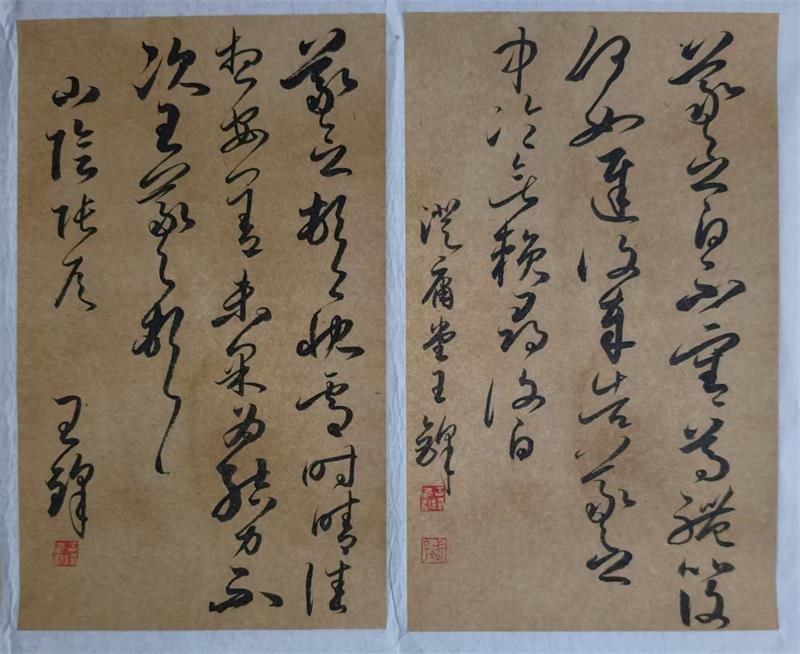 羲之白不審尊體比復
何如遲復奉告羲之
中冷無賴尋復白
庸堂王鋒
羲之頓首快雪時晴佳
想安善未果為結力不
次王羲之頓首
山陰張侯
王鋒